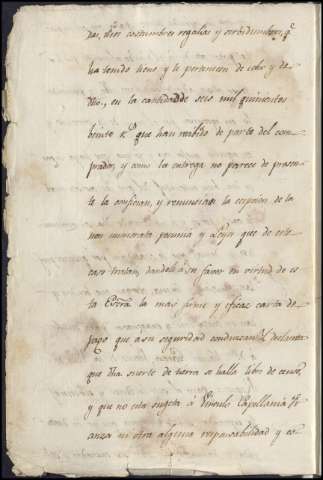 das, usos costumbres regalias y servidumbres, qe.
ha tenido tiene y le pertenecen de echo y de
dro., en la cantidad de seis mil quinientos
beinte rs. que han recibido de parte del com
prador, y como la entrega no parece de presen
te la confiesan, y renuncian la escepcion de la
non numerata pecunia y Leyes que de este
caso tratan, dandole á su favor en virtud de es
ta Escra. la mas firme y eficaz carta de
pago que a su seguridad conduzca y declaran
que dha suerte de tierra se halla libre de censo,
y que no esta sugeta á Vinculo Capellania fi
anza ni otra alguna responsabilidad y es